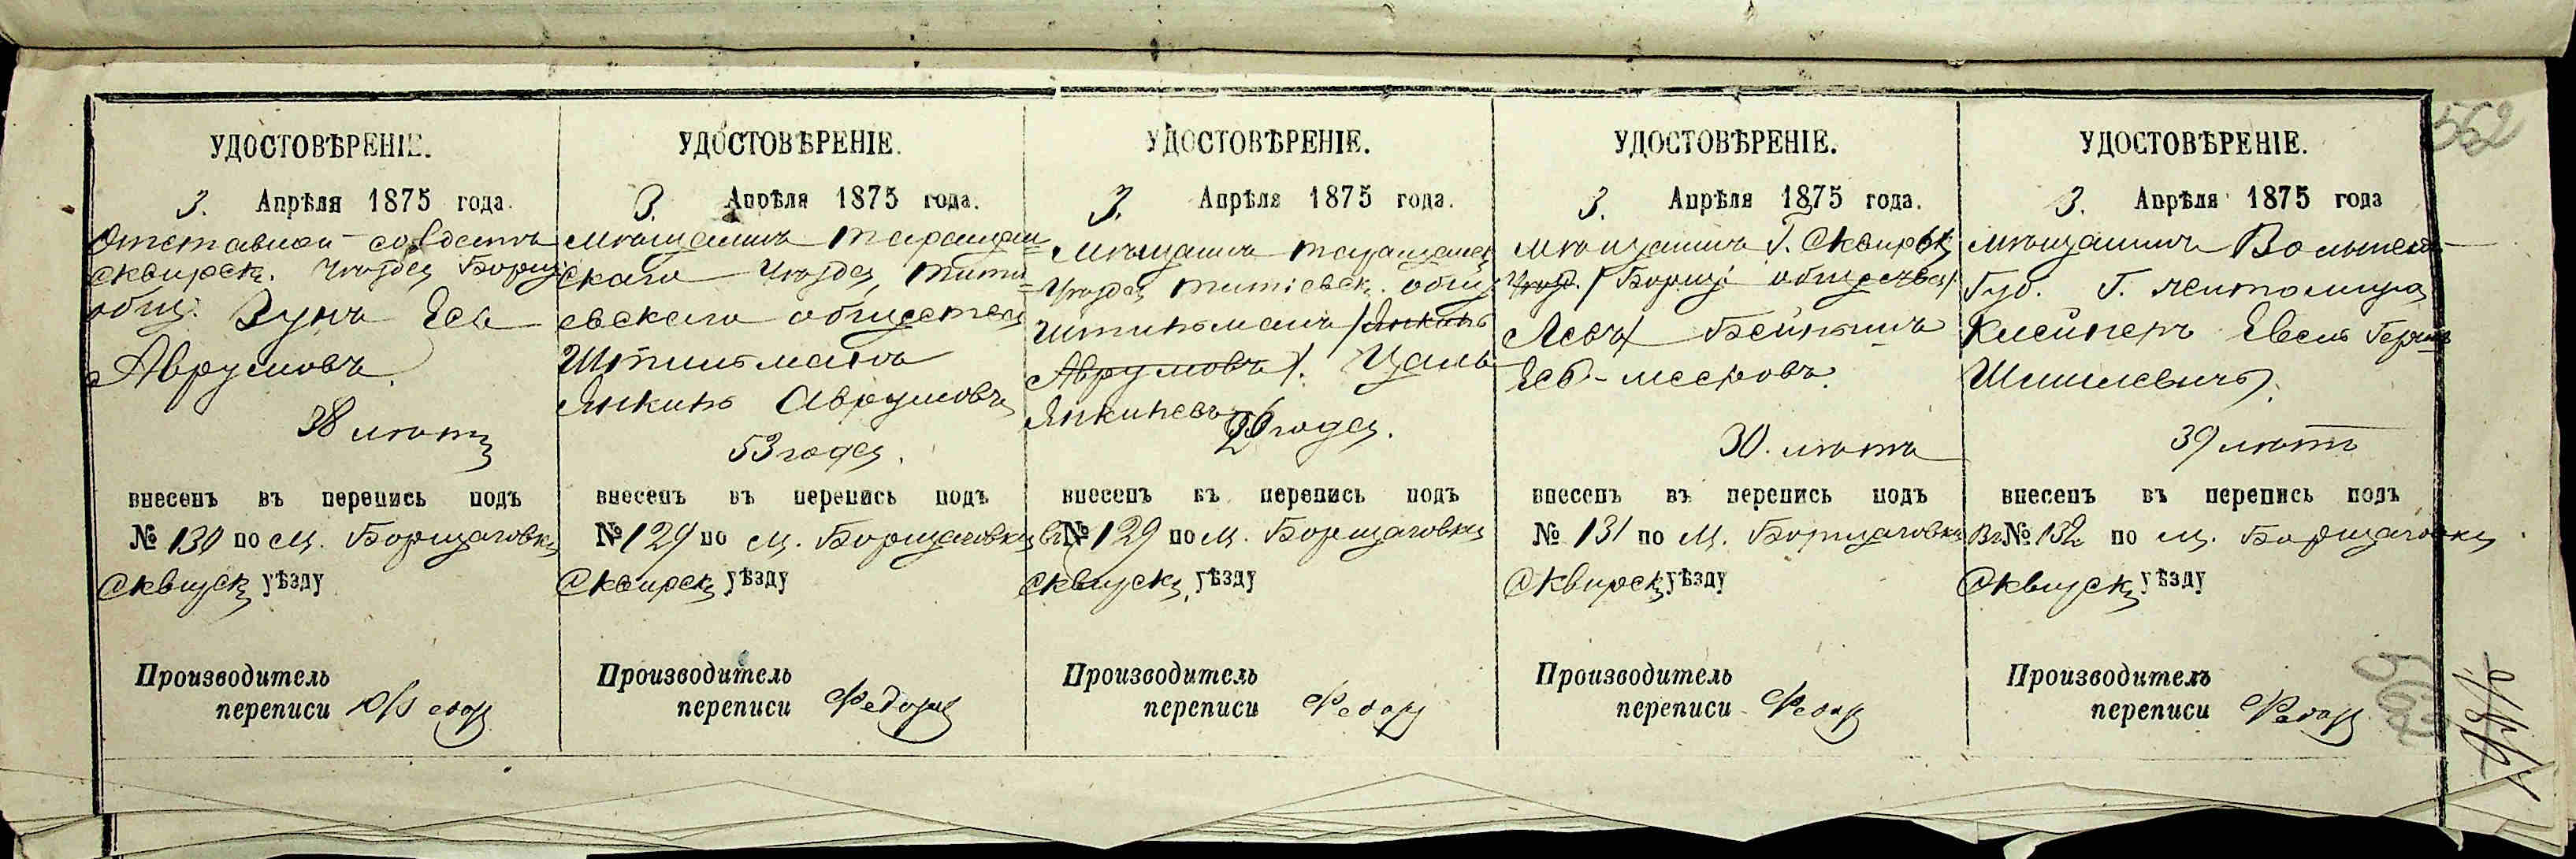 562
УДОСТОВѢРЕНІЕ.
3. Апрѣля 1875 года.
Отставной солдатъ
Сквирск. Уѣзда Борщ.
общ. Зунъ Есь
Аврумовъ.
38 лѣтъ
внесенъ въ перепись подъ
№ 130 по М. Борщаговкѣ
Сквирск уѣзду
Производитель
переписи
УДОСТОВѢРЕНІЕ.
3. Апрѣля 1875 года.
Мѣщанинъ Таращан=
скаго Уѣзда, Титі=
евскаго общества
Штильманъ
Янкиль Аврумовъ
53 года.
внесенъ въ перепись подъ
№ 129 по М. Борщаговкѣ
Сквирск уѣзду
Производитель
переписи Федор
УДОСТОВѢРЕНІЕ.
3. Апрѣля 1875 года.
Мѣщанинъ Таращанск
Уѣзда Титіевск. общ
Штильманъ (Янкиль
Аврумовъ). Цаль
Янкилевъ
26 года.
внесенъ въ перепись подъ
№ 129 по М. Борщаговкѣ
Сквирск. уѣзду
Производитель
переписи Федор
УДОСТОВѢРЕНІЕ.
3. Апрѣля 1875 года.
Мѣщанинъ Г. Сквиры
Уѣзд. (Борщ. общества)
Бейнышъ
30. лѣтъ
внесенъ въ перепись подъ
№ 131 по М. Борщаговкѣ
Сквирск уѣзду
Производитель
переписи Федор
УДОСТОВѢРЕНІЕ.
3. Апрѣля 1875 года
Мѣщанинъ Волынск
Губ. Г. Житомира
Клейнеръ Евель Герш
39 лѣтъ
внесенъ въ перепись подъ
№ 132 по М. Борщаговкѣ
Сквирск уѣзду
Производитель
переписи Федор
562